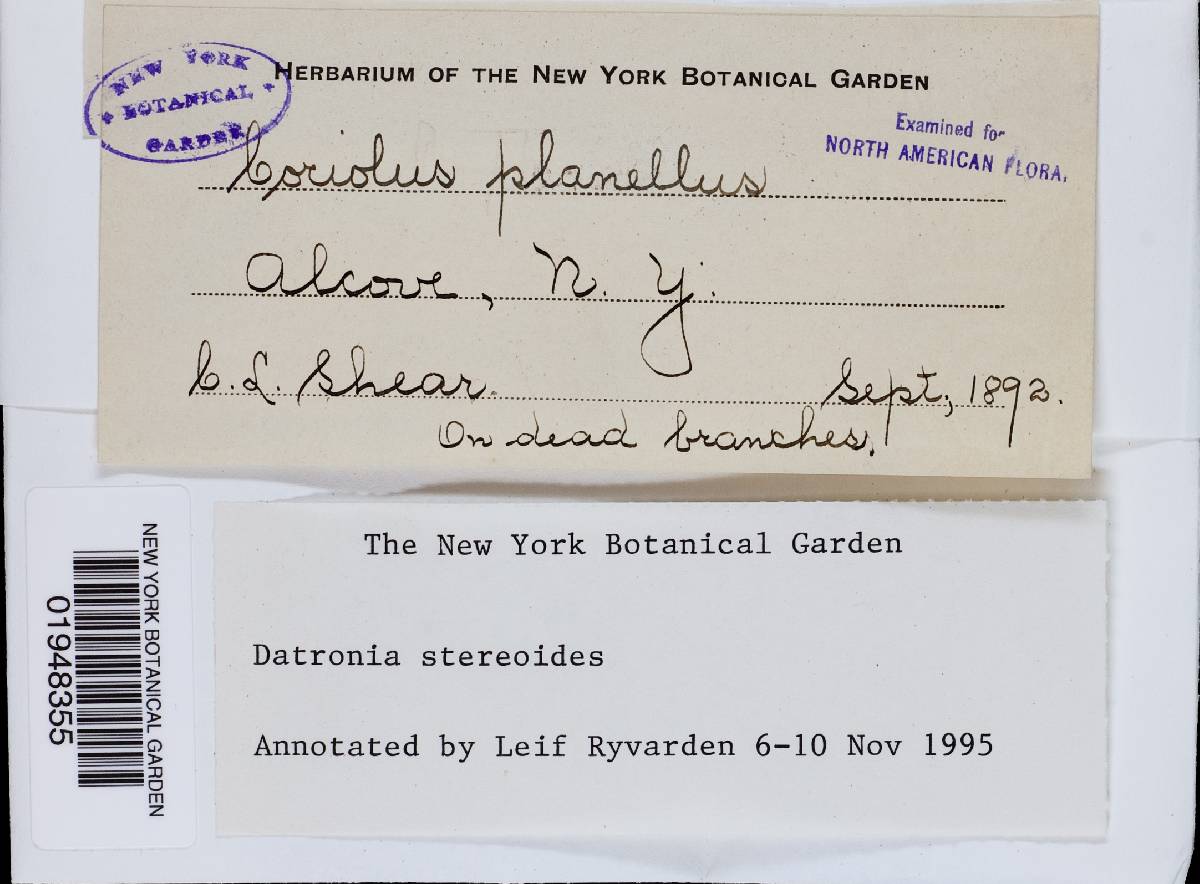 NEW YORK
BOTANICAL
GARDEN
HERBARIUM OF THE NEW YORK BOTANICAL GARDEN
Examined for
NORTH AMERICAN FLORA.
Coriolus planellus
Alcove, N. Y.
C. L. Shear. Sept, 1893.
On dead branches.
NEW YORK BOTANICAL GARDEN
01948355
The New York Botanical Garden
Datronia stereoides
Annotated by Leif Ryvarden 6-10 Nov 1995